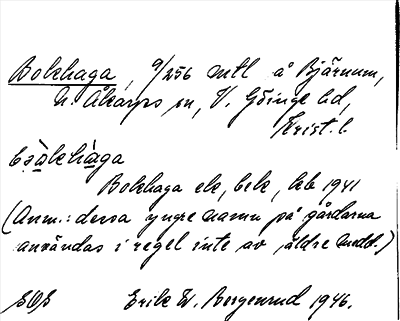 Bokhaga, 9/256 mtl å Bjärnum,
N. Åkarps sn, V. Göinge hd,
Krist. l.
bokhàga
Bokhaga ek, bek, leb 1941
(Anm.: dessa yngre namn på gårdarna
användas i regel inte av äldre medd.)
Erik W. Borgenrud 1946.